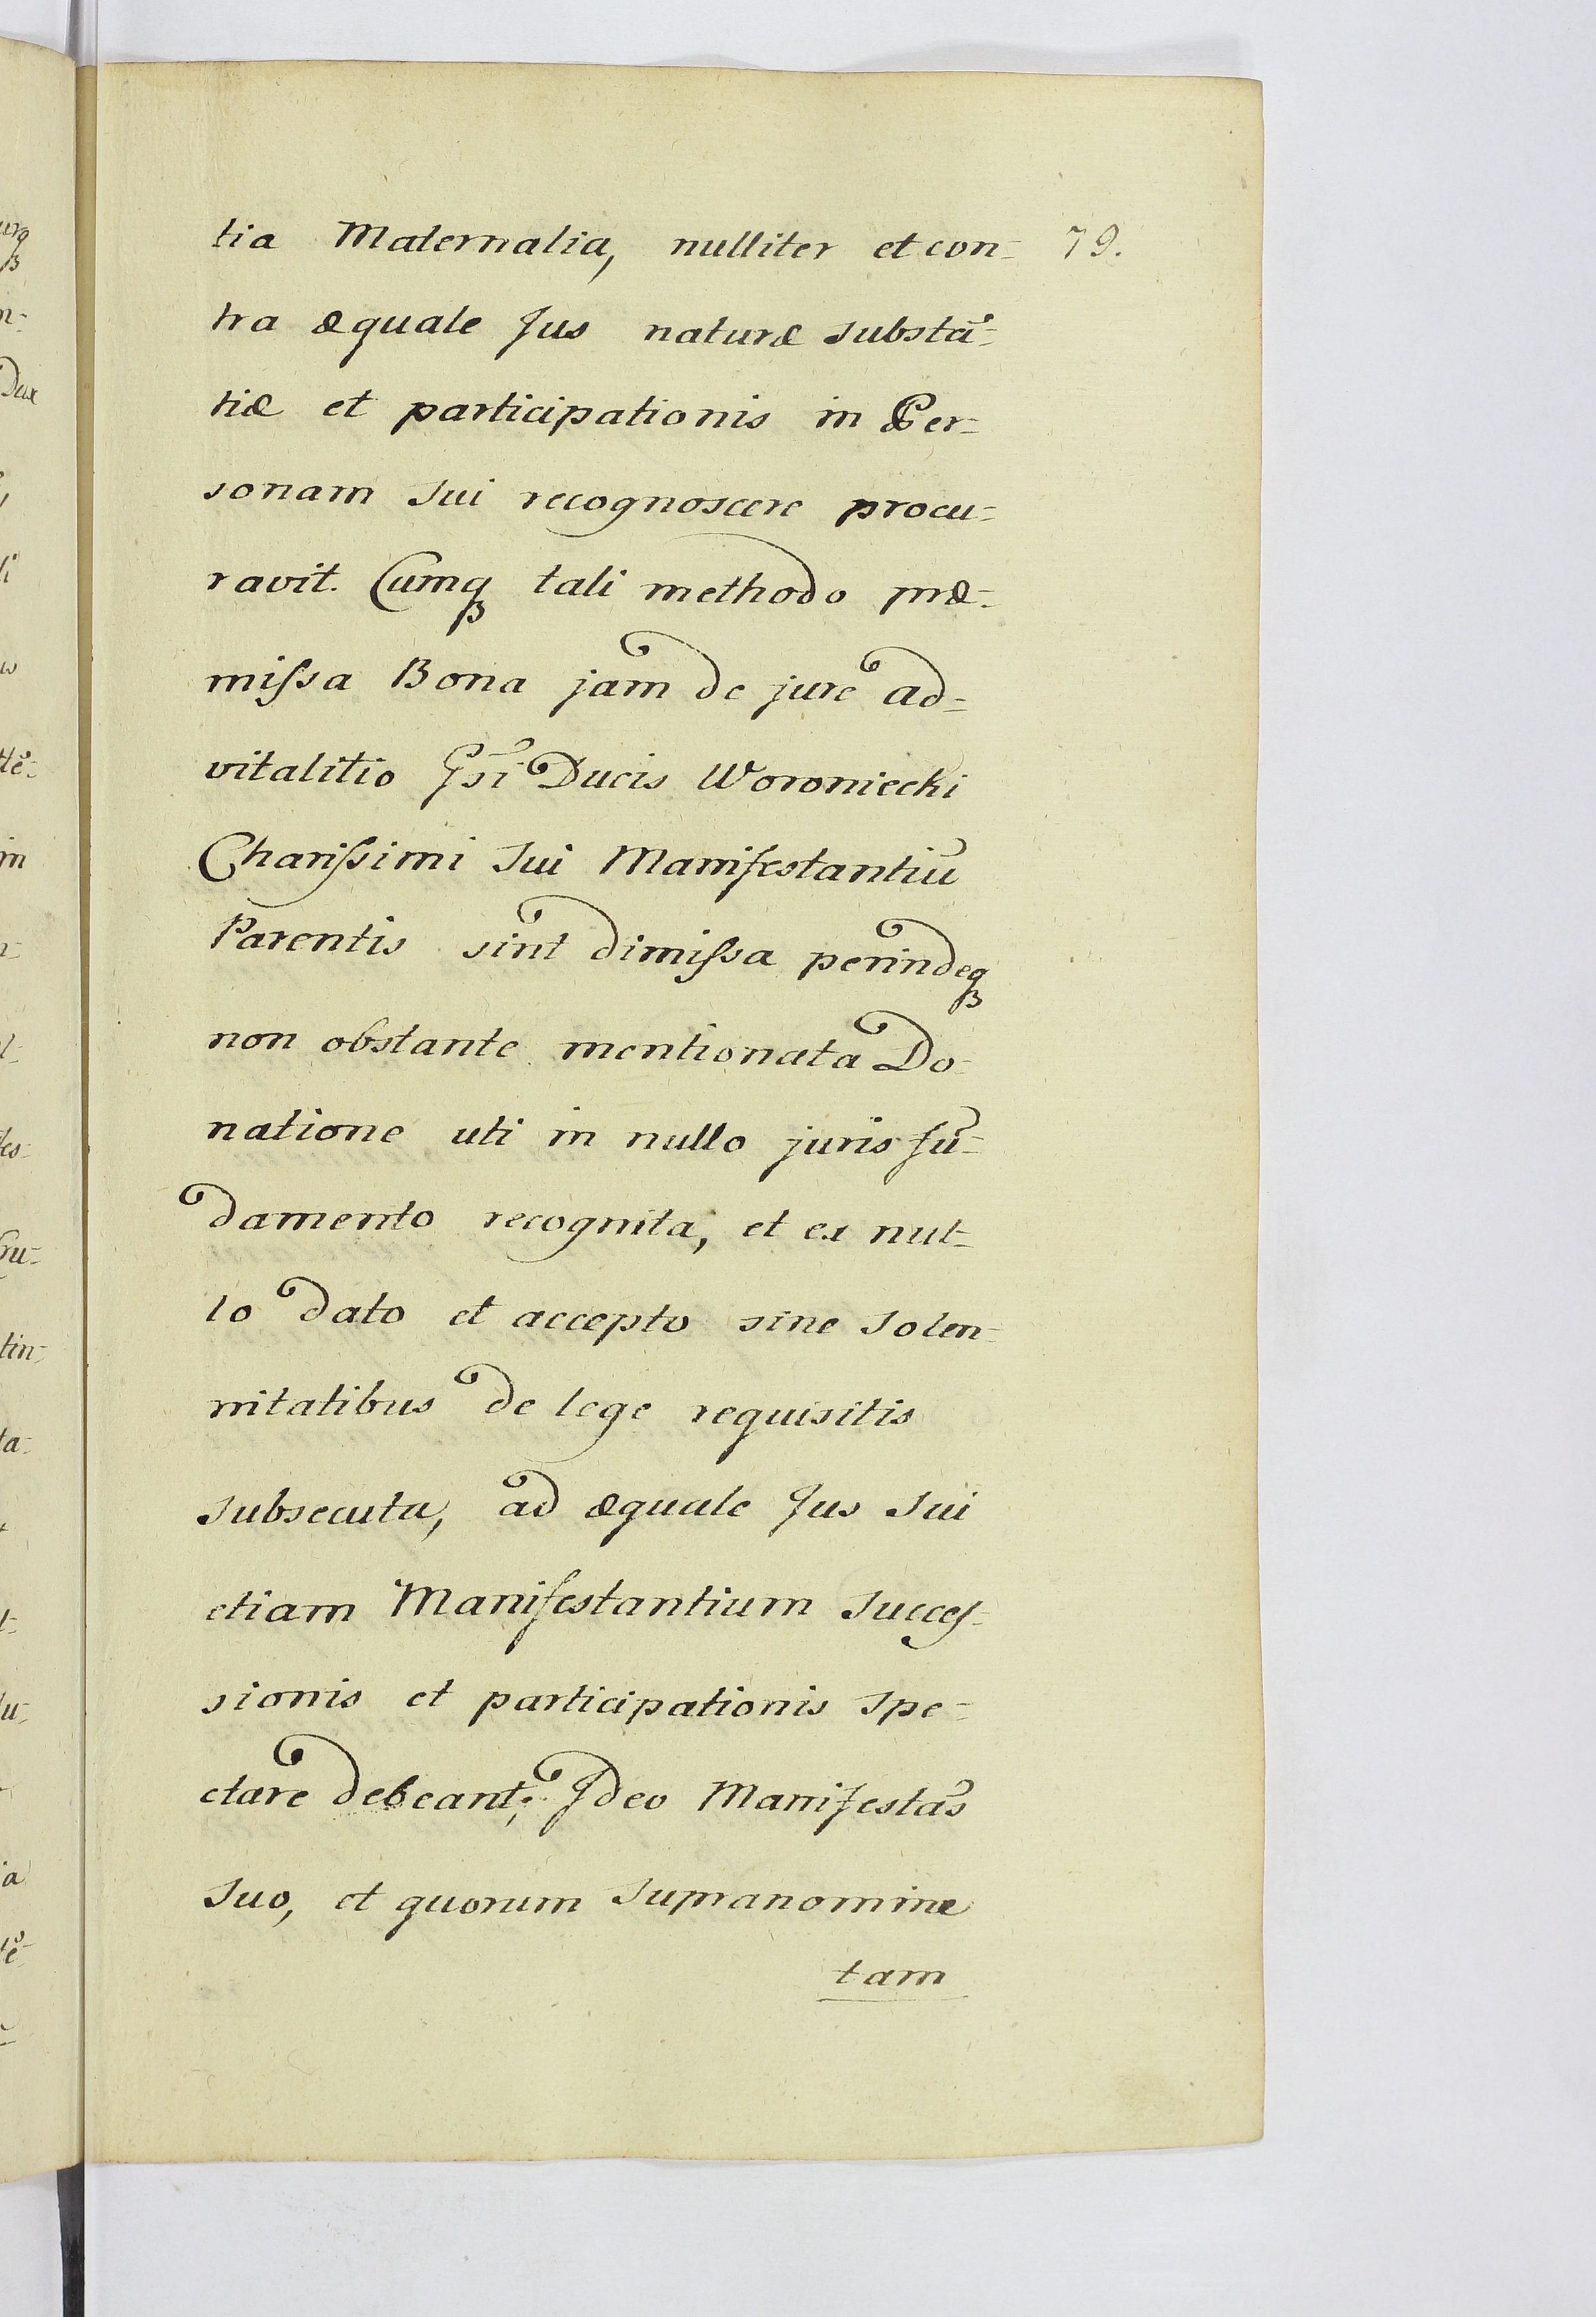 tia Maternalia, nulliter et con= 79.
tra æquale Jus naturæ substã=
tiæ et participationis in Per=
sonam sui recognoscere procu=
ravit. Cumqꝫ tali methodo præ=
miſsa Bona jam de jure ad=
vitalitio Gsi Ducis Woroniecki
Chariſsimi sui Manifestantiũ
Parentis sint dimiſsa perindeqꝫ
non obstante mentionata Do=
natione uti in nullo juris fũ=
damento recognita, et ex nul=
lo dato et accepto sine solen=
nitatibus de lege requisitis
subsecuta, ad æquale Jus sui
etiam Manifestantium succeſ=
sionis et participationis spe=
ctare debeant; Ideo Manifestãs
suo, et quorum supranomine
tam